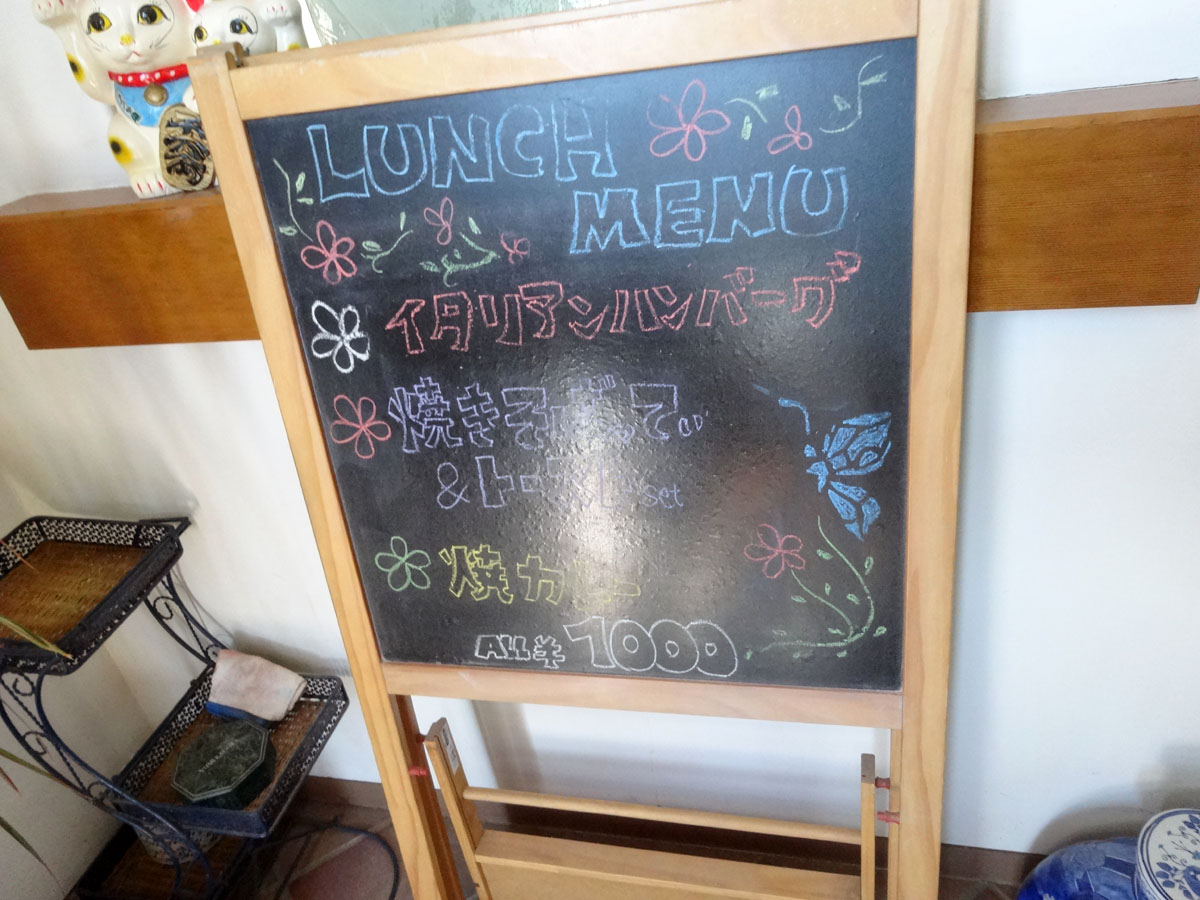 LUNCH
MENU
イタリアンハンバーグ
焼きそばってぃ
&トースト set
焼カレー
ALL ¥1000